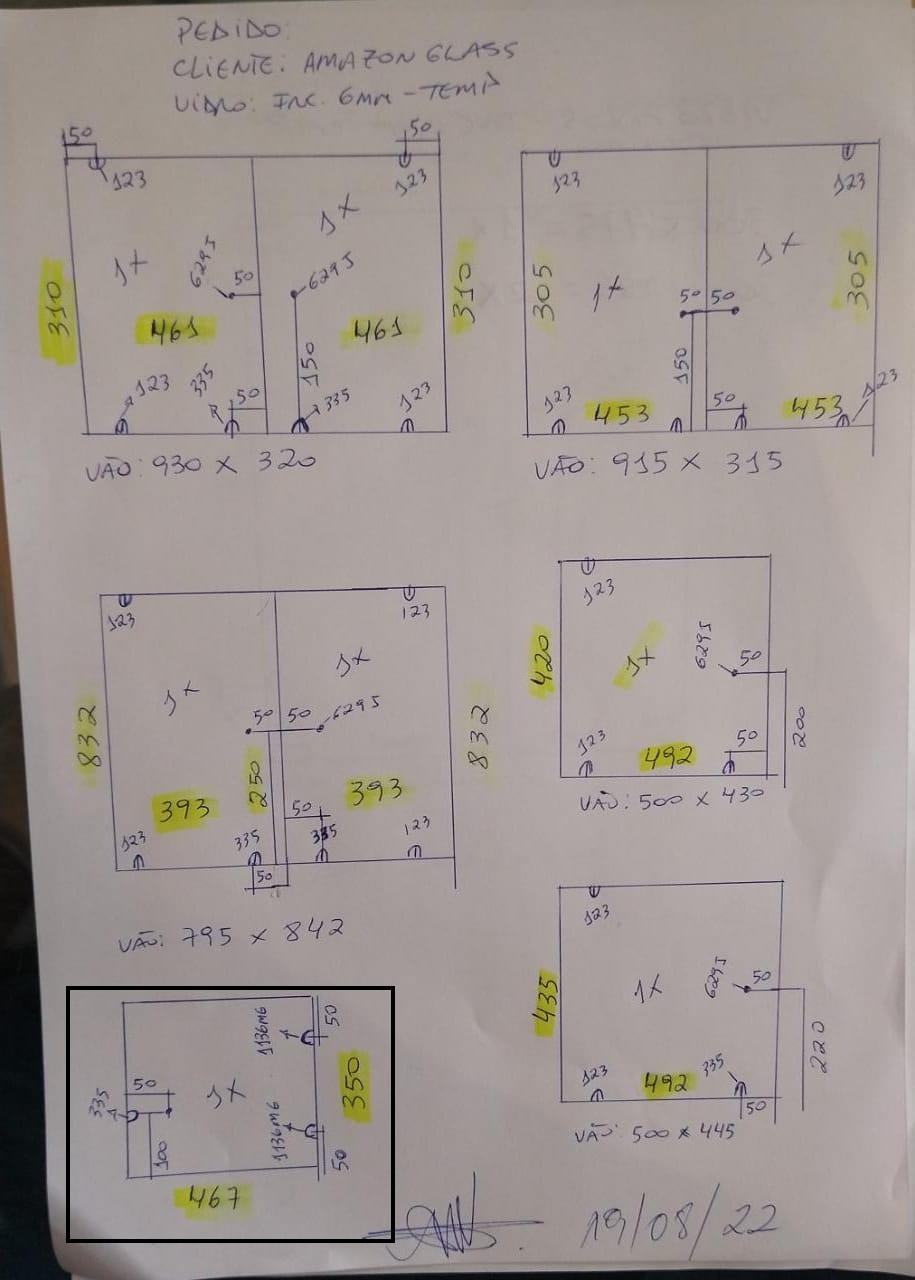 PEDIDO:
CLIENTE: AMAZON GLASS
VIDRO: INC. 6MM - TEMP
50
50
123
123
1x
1x
6295
50
6295
310
461
461
310
150
123
335
50
335
123
VÃO: 930 x 320
123
123
305
1x
1x
305
50
50
150
123
453
50
453
123
VÃO: 915 x 315
123
123
1x
1x
50
50
6295
832
832
393
250
50
393
123
335
335
123
50
VÃO: 795 x 842
123
420
1x
6295
50
200
123
492
50
VÃO: 500 x 430
123
435
1x
6295
50
220
123
492
335
50
VÃO: 500 x 445
1136M6
50
335
50
1x
350
100
1136M6
50
467
19/08/22